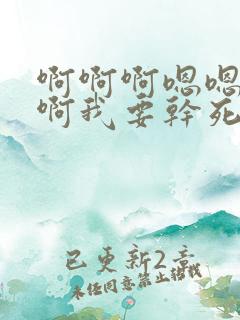 啊啊啊嗯嗯
啊我要幹死
已更新2章
未经同意禁止转载